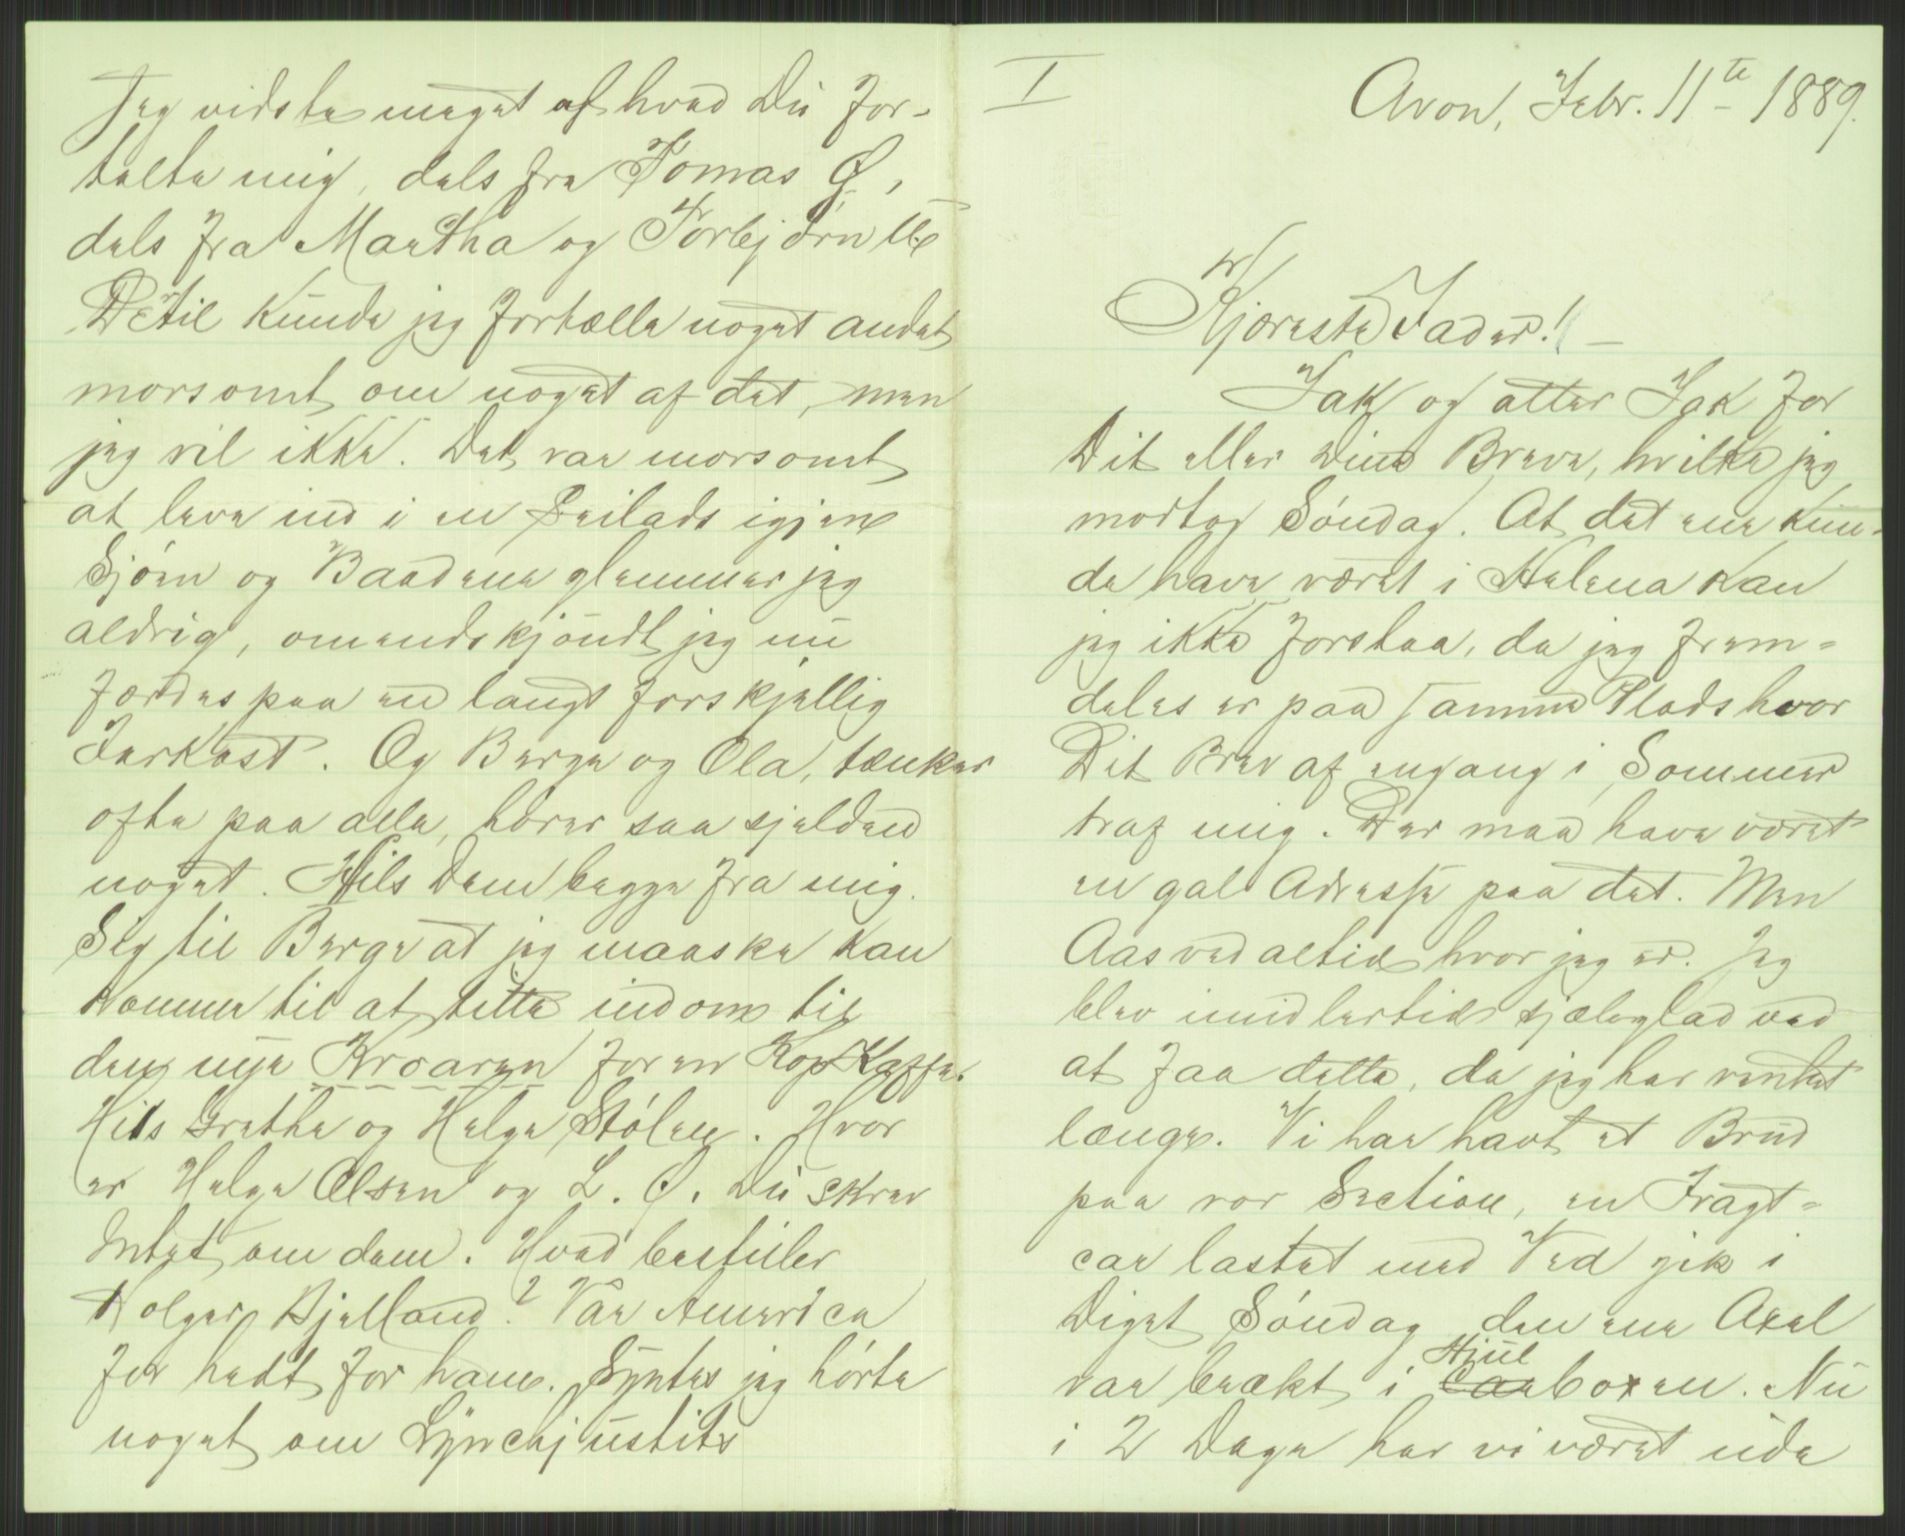 I
Avon, Febr. 11te 1889.
Kjæreste Fader! —
Tak og atter Tak for
Dit eller Dine Breve, hvilke jeg
modtog Søndag. At det ene kun-
de have været i Helena kan
jeg ikke forstaa, da jeg frem=
deles er paa samme Plads hvor
Dit Brev af engang i Sommer
traf mig. Der maa have været
en gal Adresse paa det. Men
Aas ved altid hvor jeg er. Jeg
blev imidlertid sjæleglad ved
at faa dette, da jeg har ventet
længe. Vi har havt et Brud
paa vor Section, en Fragt=
car lastet med Ved gik i
Diget Søndag den ene Axel
var brækt i Hjulboxen. Nu
i 2 Dage har vi været ude
Jeg vidste meget af hvad Du for-
talte mig, dels fra Tomas Ø,
dels fra Martha og Torbjørn U.
Dertil kunde jeg fortælle noget andet
morsomt om noget af det, men
jeg vil ikke. Det var morsomt
at leve ind i en Seilads igjen
Sjøen og Baadene glemmer jeg
aldrig, omendskjøndt jeg nu
færdes paa en langt forskjellig
Farkost. Og Berge og Ola, tænker
ofte paa alle, hører saa sjelden
noget. Hils Dem begge fra mig.
Sig til Berge at jeg maaske kan
komme til at titte indom til
den nye Kroaren for en Kop Kaffe.
Hils Grethe og Helge Stølen. Hvor
er Helge Olsen og L. O. Du skrev
Intet om dem. Hvad bestiller
Holger Bjelland? Var America
for hedt for ham. Syntes jeg hørte
noget om Lynchjustits